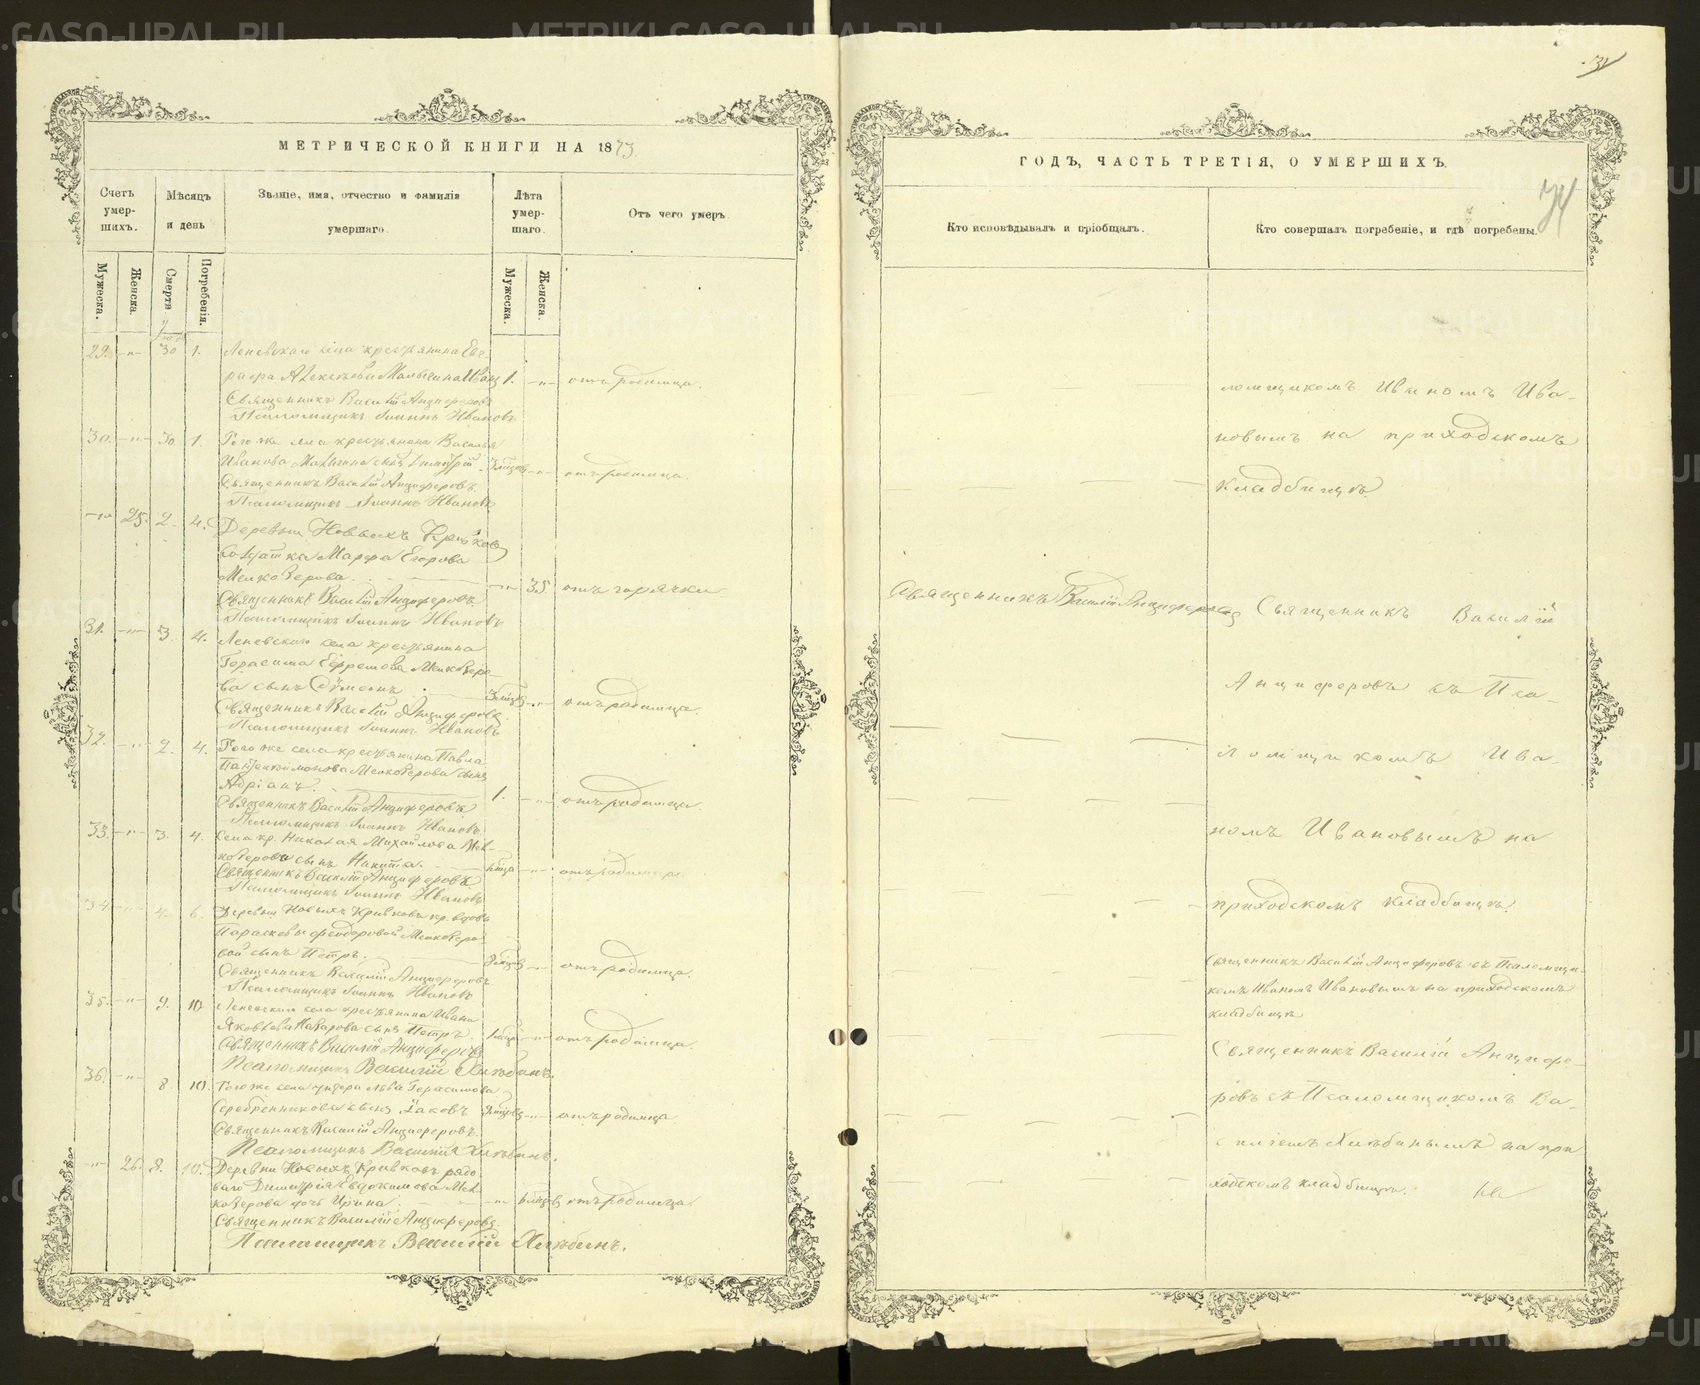 МЕТРИЧЕСКОЙ КНИГИ НА 1873
Счетъ умер-шихъ.
Мѣсяцъ и день
Званіе, имя, отчество и фамилія умершаго.
Лѣта умер-шаго.
Отъ чего умеръ.
Мужеска.
Женска.
Смерти
Погребенія.
Мужеска.
Женска.
29. -"- 30 1. Леневскаго села крестьянина Евг-
рафа Алексѣева Малыгина Иванъ 1. -"- отъ родимца.
Священникъ Василій Анциферовъ
Псаломщикъ Іоаннъ Ивановъ
30. -"- 30 1. Того же села крестьянина Василья
Иванова Малыгина сынъ Димитрій -"- отъ родимца.
Священникъ Василій Анциферовъ.
Псаломщикъ Іоаннъ Ивановъ
-"- 25. 2. 4. Деревни Новыхъ Кривковъ
солдатка Марфа Егорова
Мелкозерова. -"- 35. отъ горячки
Священникъ Василій Анциферовъ
Псаломщикъ Іоаннъ Ивановъ
31. -"- 3. 4. Леневскаго села крестьянина
Герасима Ефремова Мелкозеро-
ва сынъ Сѵмеонъ -"- отъ родимца.
Священникъ Василій Анциферовъ
Псаломщикъ Іоаннъ Ивановъ
32. -"- 2. 4. Того же села крестьянина Павла
Пантелеймонова Мелкозерова сынъ
Адріанъ. 1. -"- отъ родимца.
Священникъ Василій Анциферовъ
Псаломщикъ Іоаннъ Ивановъ
33. -"- 3. 4. Села кр. Николая Михайлова Мел-
козерова сынъ Никита. -"- отъ родимца.
Священникъ Василій Анциферовъ
Псаломщикъ Іоаннъ Ивановъ
34. -"- 4. 6. Деревни Новыхъ Кривковъ кр. вдовы
Параскевы Феодоровой Мелкозеро-
вой сынъ Петръ. -"- отъ родимца.
Священникъ Василій Анциферовъ
Псаломщикъ Іоаннъ Ивановъ
35. -"- 9. 10. Леневскаго села крестьянина Ивана
Яковлева Макарова сынъ Петръ. -"- отъ родимца.
Священникъ Василій Анциферовъ
Псаломщикъ Василій Хлѣбинъ.
36. -"- 8. 10. Того же села Льва Герасимова
Серебренникова сынъ Іаковъ -"- отъ родимца
Священникъ Василій Анциферовъ.
Псаломщикъ Василій Хлѣбинъ.
-"- 26. 8. 10. Деревни Новыхъ Кривковъ рядо-
ваго Димитрія Евдокимова Мел-
козерова дочь Ирина. -"- отъ родимца.
Священникъ Василій Анциферовъ.
Псаломщикъ Василій Хлѣбинъ.
ГОДЪ, ЧАСТЬ ТРЕТІЯ, О УМЕРШИХЪ.
34
Кто исповѣдывалъ и пріобщалъ.
Кто совершалъ погребеніе, и гдѣ погребены.
ломщикомъ Иваномъ Ива-
новымъ на приходскомъ
кладбищѣ.
Священникъ Василій Анциферовъ
Священникъ Василій
Анциферовъ съ Пса-
ломщикомъ Ива-
номъ Ивановымъ на
приходскомъ кладбищѣ.
Священникъ Василій Анциферовъ съ Псаломщи-
комъ Иваномъ Ивановымъ на приходскомъ
кладбищѣ
Священникъ Василій Анцифе-
ровъ съ Псаломщикомъ Ва-
силіемъ Хлѣбинымъ на при
ходскомъ кладбищѣ.
METRIKI.GASO-URAL.RU